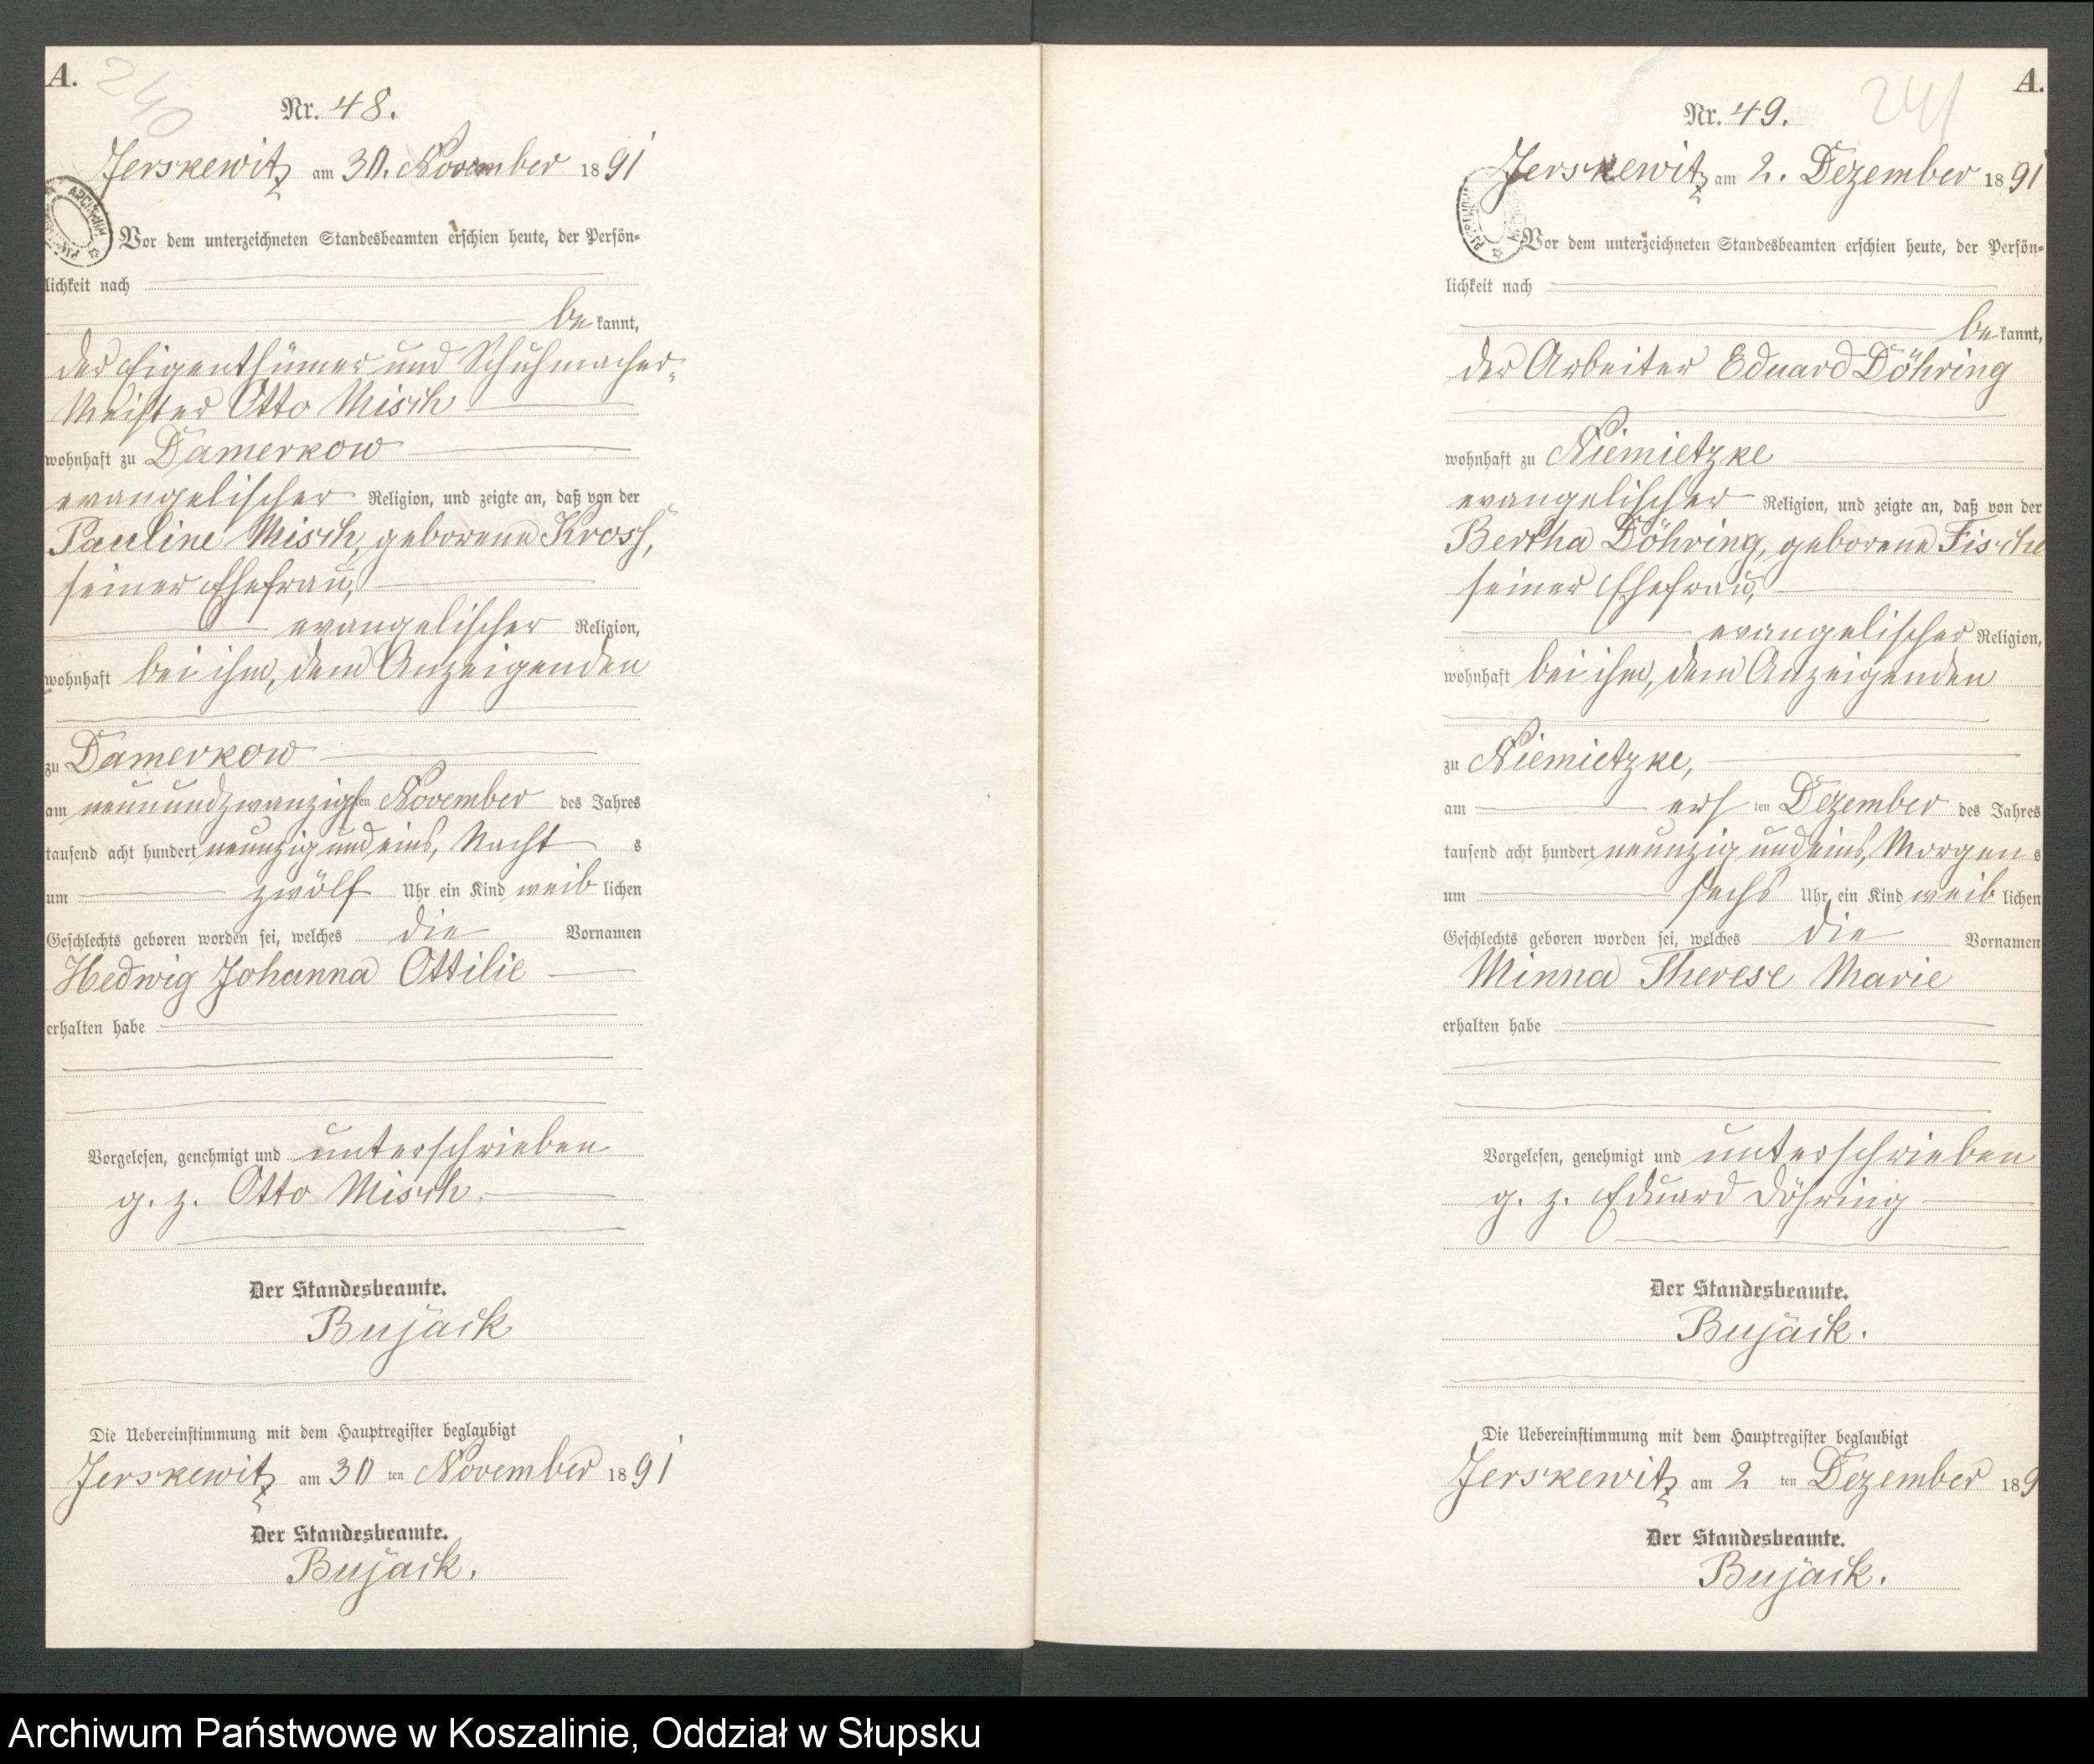 A.
240
Nr. 48.
Jerskewitz am 30. November 1891
Vor dem unterzeichneten Standesbeamten erschien heute, der Persön-
lichkeit nach
bekannt,
der Eigenthümer und Schuhmacher-
Meister Otto Misch
wohnhaft zu Damerkow
evangelischer Religion, und zeigte an, daß von der
Pauline Misch, geborene Kross,
seiner Ehefrau,
evangelischer Religion,
wohnhaft bei ihm, dem Anzeigenden
zu Damerkow
am neunundzwanzigsten November des Jahres
tausend acht hundert neunzig und eins, Nachts
um zwölf Uhr ein Kind weiblichen
Geschlechts geboren worden sei, welches die Vornamen
Hedwig Johanna Ottilie
erhalten habe
Vorgelesen, genehmigt und unterschrieben
g. z. Otto Misch.
Der Standesbeamte.
Bujack
Die Uebereinstimmung mit dem Hauptregister beglaubigt
Jerskewitz am 30ten November 1891
Der Standesbeamte.
Bujack.
A.
241
Nr. 49.
Jerskewitz am 2. Dezember 1891
Vor dem unterzeichneten Standesbeamten erschien heute, der Persön-
lichkeit nach
bekannt,
der Arbeiter Eduard Döhring
wohnhaft zu Niemietzke
evangelischer Religion, und zeigte an, daß von der
Bertha Döhring, geborene Fische
seiner Ehefrau,
evangelischer Religion,
wohnhaft bei ihm, dem Anzeigenden
zu Niemietzke,
am ersten Dezember des Jahres
tausend acht hundert neunzig und eins, Morgens
um sechs Uhr ein Kind weiblichen
Geschlechts geboren worden sei, welches die Vornamen
Minna Therese Marie
erhalten habe
Vorgelesen, genehmigt und unterschrieben
g. z. Eduard Döhring
Der Standesbeamte.
Bujack.
Die Uebereinstimmung mit dem Hauptregister beglaubigt
Jerskewitz am 2ten Dezember 189
Der Standesbeamte.
Bujack.
Archiwum Państwowe w Koszalinie, Oddział w Słupsku